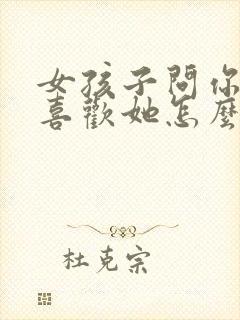 女孩子問你
喜歡她怎麼
杜克宗